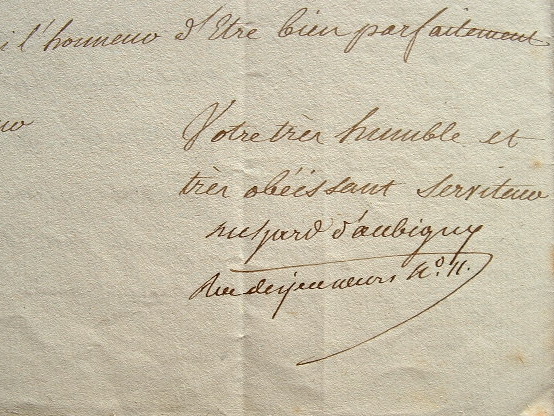 i l'honneur d'Etre bien parfaitement
Votre très humble et
très obéissant Serviteur
Richard d'aubigny
Rue des jeuneurs N.º 11.